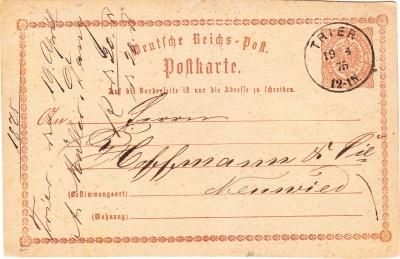 Deutsche Reichs-Post.
Postkarte.
Auf die Vorderseite ist nur die Adresse zu schreiben.
TRIER
19 4
75
12-1N
An Herrn
Hoffmann & Cie
(Bestimmungsort) Neuwied
(Wohnung)
1875
Trier 19 April